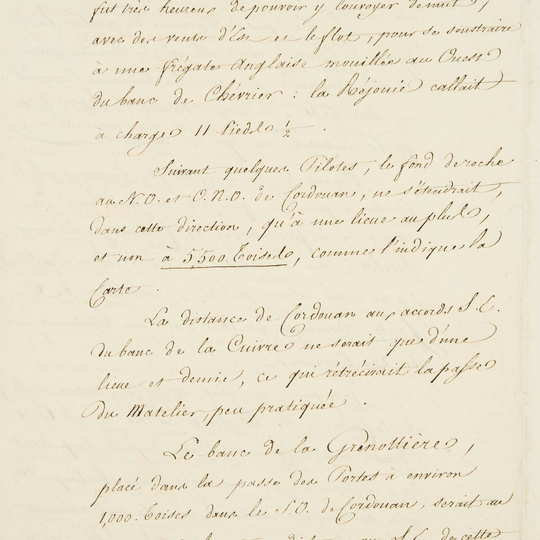 fut très heureux de pouvoir y louvoyer de nuit,
avec des vents d'Est et le flot, pour se soustraire
à une frégate Anglaise mouillée au Ouest
du banc de Chevrier : la Réjouie callait
à charge 11 Pieds ½ .
Suivant quelques Pilotes, le fond de roche
au N.O. et O.N.O. de Cordouan, ne s'étendrait,
dans cette direction, qu'à une lieue au plus,
et non à 5,500 toises, comme l'indique la
Carte .
La distance de Cordouan aux accords S.E.
du banc de la Cuivre ne serait que d'une
lieue et demie, ce qui rétrécirait la passe
du Matelier, peu pratiquée .
Le banc de la Grenottière,
placé dans la passe des Portes à environ
1,000 toises dans le S.O. de Cordouan, serait au
S.E. de cette